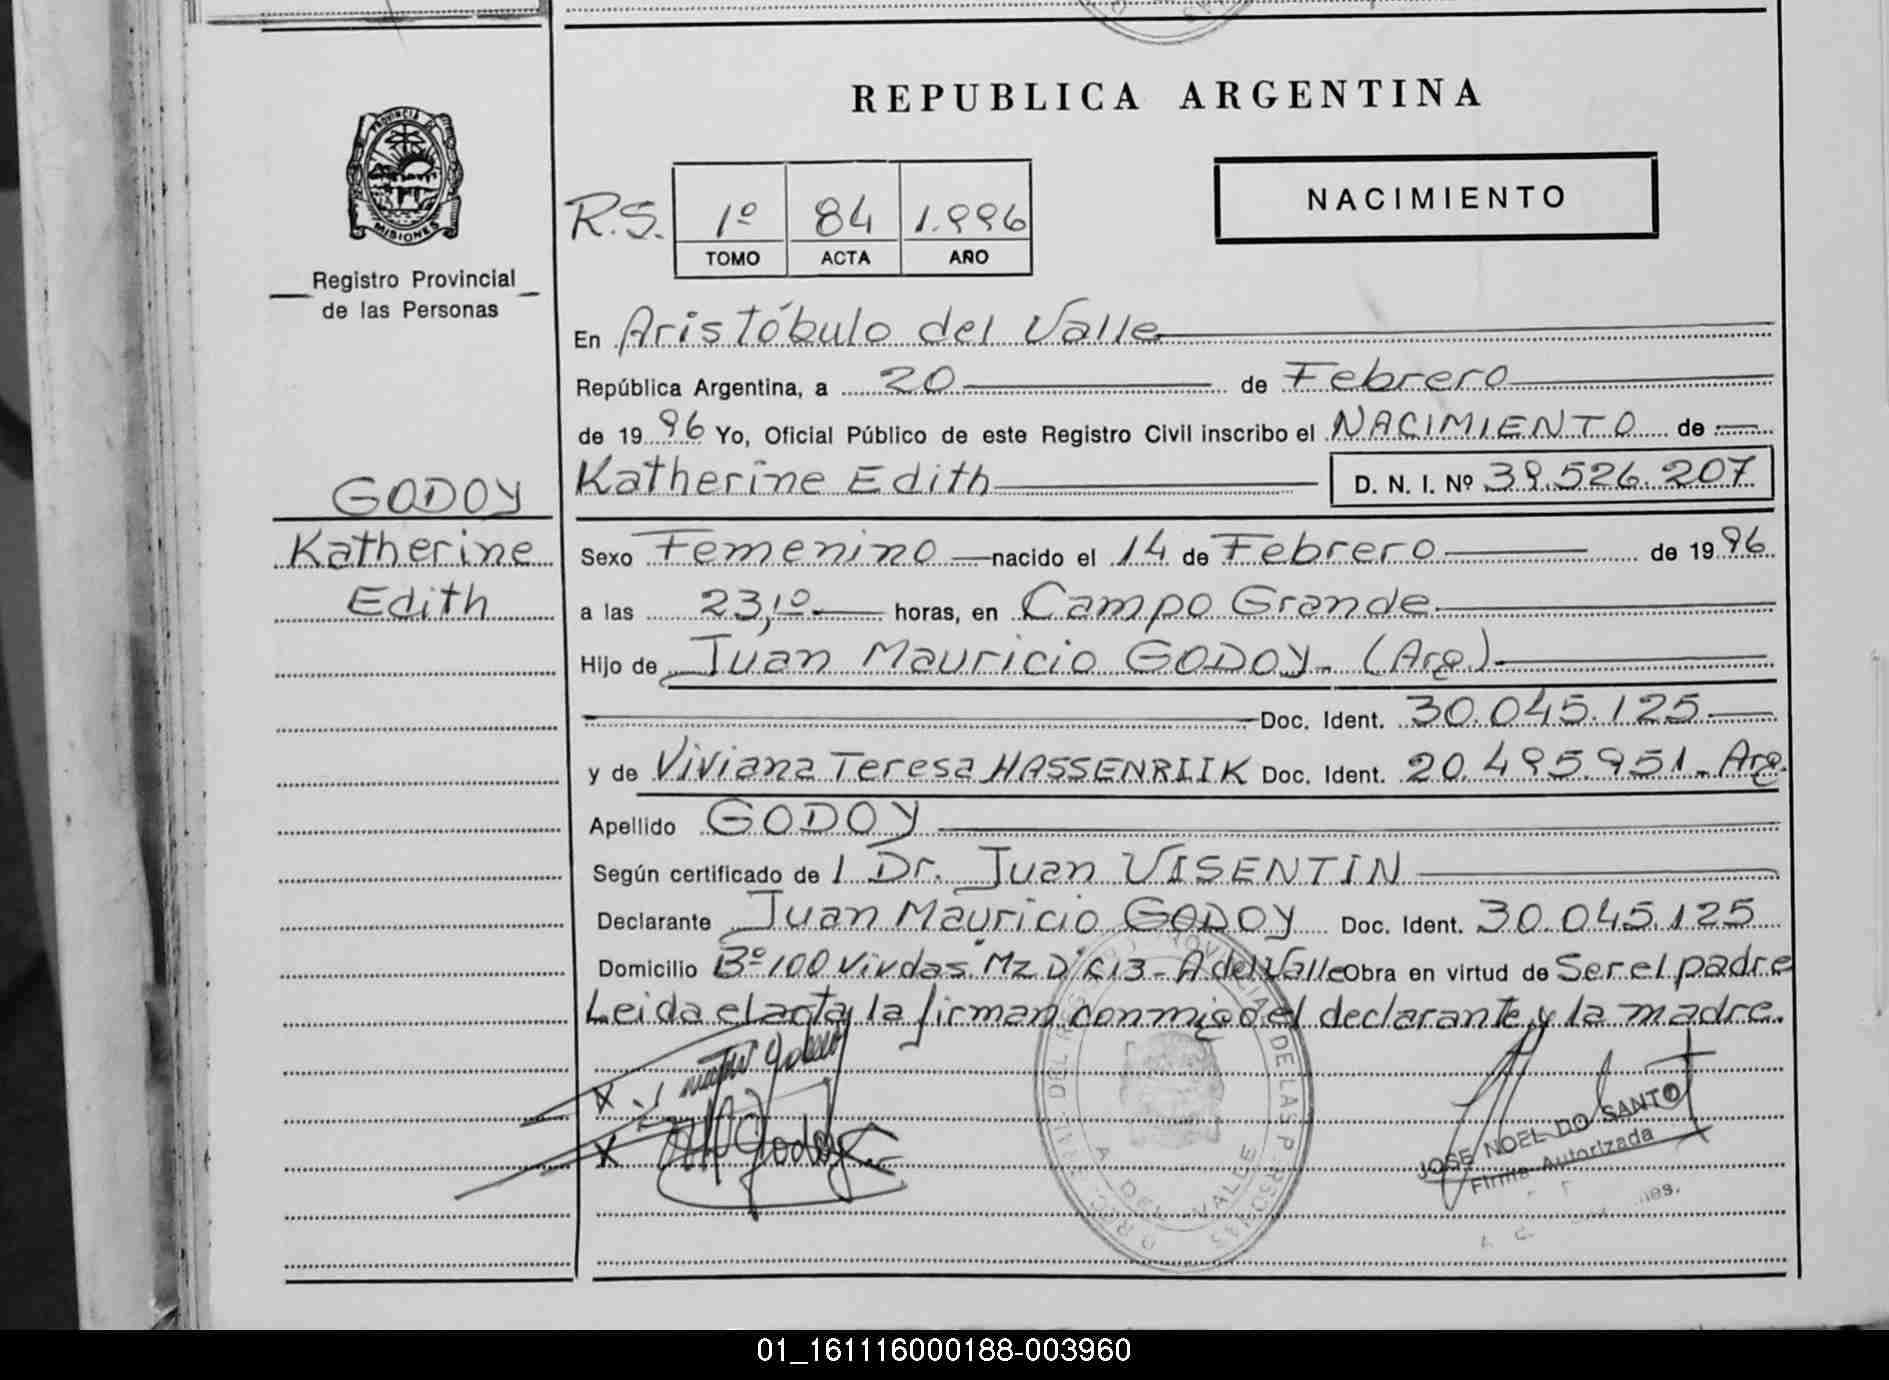 REPUBLICA ARGENTINA
PROVINCIA DE
MISIONES
Registro Provincial
de las Personas
R.S. 1º 84 1.996
TOMO ACTA AÑO
NACIMIENTO
En Aristóbulo del Valle
República Argentina, a 20 de Febrero
de 19 96 Yo, Oficial Público de este Registro Civil inscribo el NACIMIENTO de
Katherine Edith D. N. I. Nº 39.526.207
GODOY
Katherine
Edith
Sexo Femenino nacido el 14 de Febrero de 19 96
a las 23,10 horas, en Campo Grande
Hijo de Juan Mauricio GODOY. (Arg.)
Doc. Ident. 30.045.125
y de Viviana Teresa HASSENRIIK Doc. Ident. 20.495.951. Arg.
Apellido GODOY
Según certificado de l Dr. Juan VISENTIN
Declarante Juan Mauricio GODOY Doc. Ident. 30.045.125
Domicilio Bº 100 Vivdas. Mz D C13 - A del Valle Obra en virtud de Ser el padre
Leida el acta, la firman conmigo el declarante y la madre.
X
X Godoy
A. DEL VALLE
JOSE NOEL DO SANTO
Firma Autorizada
01_161116000188-003960